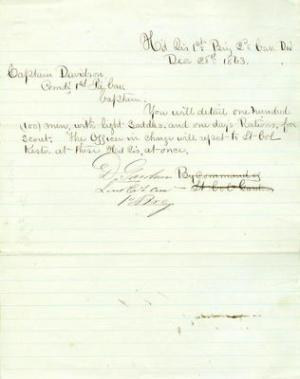 Hd Qrs 1st Brig 2d Cav Div
Dec 28th 1863.
Captain Davidson
Comdg 1st Pa Cav
Captain,
You will detail one hundred
(100) men, with light Saddles, and one days Rations, for
Scout. The Officer in charge will report to Lt-Col
at these Hd Qrs, at once.
By Command of
Lt Col